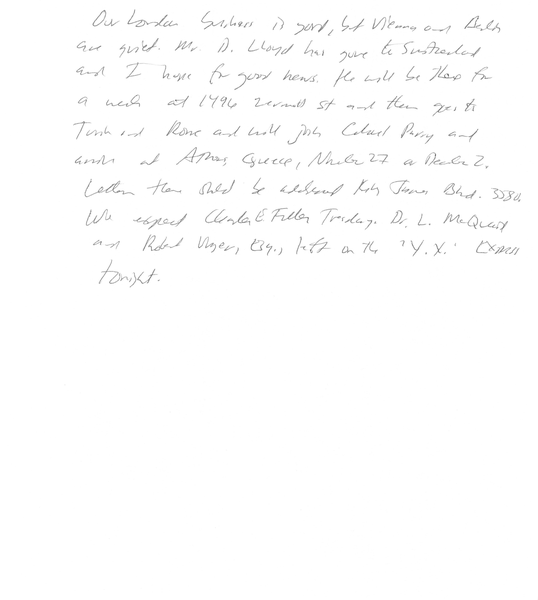 Our London business is good, but Vienna and Berlin
are quiet. Mr. D. Lloyd has gone to Switzerland
and I hope for good news. He will be there for
a week at 1496 Zermott St and then goes to
Turin and Rome and will join Colonel Parry and
arrive at Athens, Greece, November 27 or December 2.
Letters there should be addressed King James Blvd. 3580.
We expect Charles E Fuller Tuesday. Dr. L. McQuaid
and Robert Unger, Esq., left on the 'Y.X.' Express
tonight.